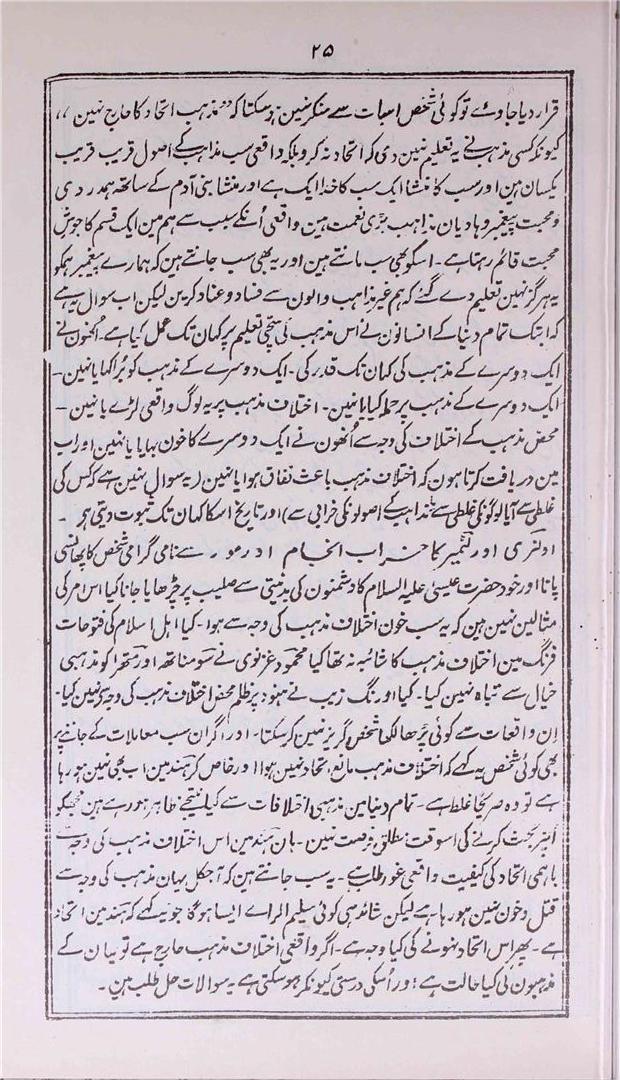 ۲۵
قرار دیا جاوے تو کوئی شخص اسبات سے منکر نہین ہوسکتا کہ ”مذہب اتحاد کا حارج نہین،،
کیونکہ کسی مذہب نے یہ تعلیم نہین دی کہ اتحاد نہ کرو بلکہ واقعی سب مذاہب کے اصول قریب قریب
یکسان ہین اور سب کا منشا ایک سب کا خدا ایک ہے اور منشا بنی آدم کے ساتھ ہمدردی
و محبت پیغمبر و ہادیان مذاہب بڑی نعمت ہین واقعی اُنکے سبب سے ہم مین ایک قسم کا جوش
محبت قائم رہتا ہے۔ اسکو بھی سب مانتے ہین اور یہ بھی سب جانتے ہین کہ ہمارے پیغمبر ہمکو
یہ ہرگز نہین تعلیم دے گئے کہ ہم غیر مذاہب والون سے فساد و عناد کرین لیکن اب سوال یہ ہے
کہ ابتک تمام دنیا کے انسانون نے اس مذہب کی سچی تعلیم پر کہان تک عمل کیا ہے۔ اُنھون نے
ایک دوسرے کے مذہب کی کہان تک قدر کی۔ ایک دوسرے کے مذہب کو بُرا کہا یا نہین۔
ایک دوسرے کے مذہب پر حملہ کیا یا نہین۔ اختلاف مذہب پر یہ لوگ واقعی لڑے یا نہین۔
محض مذہب کے اختلاف کی وجہ سے اُنھون نے ایک دوسرے کا خون بہایا یا نہین اور اب
مین دریافت کرتا ہون کہ اختلاف مذہب باعث نفاق ہوا یا نہین (یہ سوال نہین ہے کہ کس کی
غلطی سے آیا لوگونکی غلطی سے یا مذاہب کے اصولونکی خرابی سے) اور تاریخ اسکا کہان تک ثبوت دیتی ہے۔
اولٹری اور لٹیمر کا خراب انجام اور مور سے نامی گرامی شخص کا پھانسی
پانا اور خود حضرت عیسیٰ علیہ السلام کا دشمنون کی بدنیتی سے صلیب پر چڑھایا جانا کیا اس امر کی
مثالین نہین ہین کہ یہ سب خون اختلاف مذہب کی وجہ سے ہوا۔ کیا اہل اسلام کی فتوحات
فرنگ مین اختلاف مذہب کا شائبہ نہ تھا کیا محمود غزنوی نے سومناتھ اور متھرا کو مذہبی
خیال سے تباہ نہین کیا۔ کیا اورنگ زیب نے ہنود پر ظلم محض اختلاف مذہب کی وجہ سے نہین کیا۔
ان واقعات سے کوئی پڑھا لکھا شخص گریز نہین کرسکتا۔ اور اگر ان سب معاملات کے جاننے پر
بھی کوئی شخص یہ کہے کہ اختلاف مذہب مانع اتحاد نہین ہوا اور خاص کر ہند مین اب بھی نہین ہو رہا
ہے تو وہ صریحاً غلط ہے۔ تمام دنیا مین مذہبی اختلافات سے کیا نتیجے ظاہر ہو رہے ہین مجھکو
اسپر بحث کرنے کی اسوقت مطلق فرصت نہین۔ ہان ہند مین اس اختلاف مذہب کی وجہ سے
باہمی اتحاد کی کیفیت واقعی غور طلب ہے۔ یہ سب جانتے ہین کہ آجکل یہان مذہب کی وجہ سے
قتل و خون نہین ہو رہا ہے لیکن شائد ہی کوئی سلیم الراے ایسا ہوگا جو یہ کہے کہ ہند مین اتحاد
ہے۔ پھر اس اتحاد نہونے کی کیا وجہ ہے۔ اگر واقعی اختلاف مذہب حارج ہے تو یہان کے
مذہبون کی کیا حالت ہے؛ اور اُسکی درستی کیونکر ہوسکتی ہے یہ سوالات حل طلب ہین۔